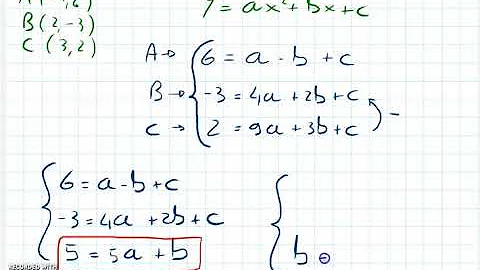 B(2,-3)
C (3,2)
y = ax²+bx+c
A→ 6 = a - b + c
B→ -3 = 4a + 2b + c
C→ 2 = 9a + 3b + c
-
6 = a - b + c
-3 = 4a + 2b + c
5 = 5a + b
b =
RECORDED WITH